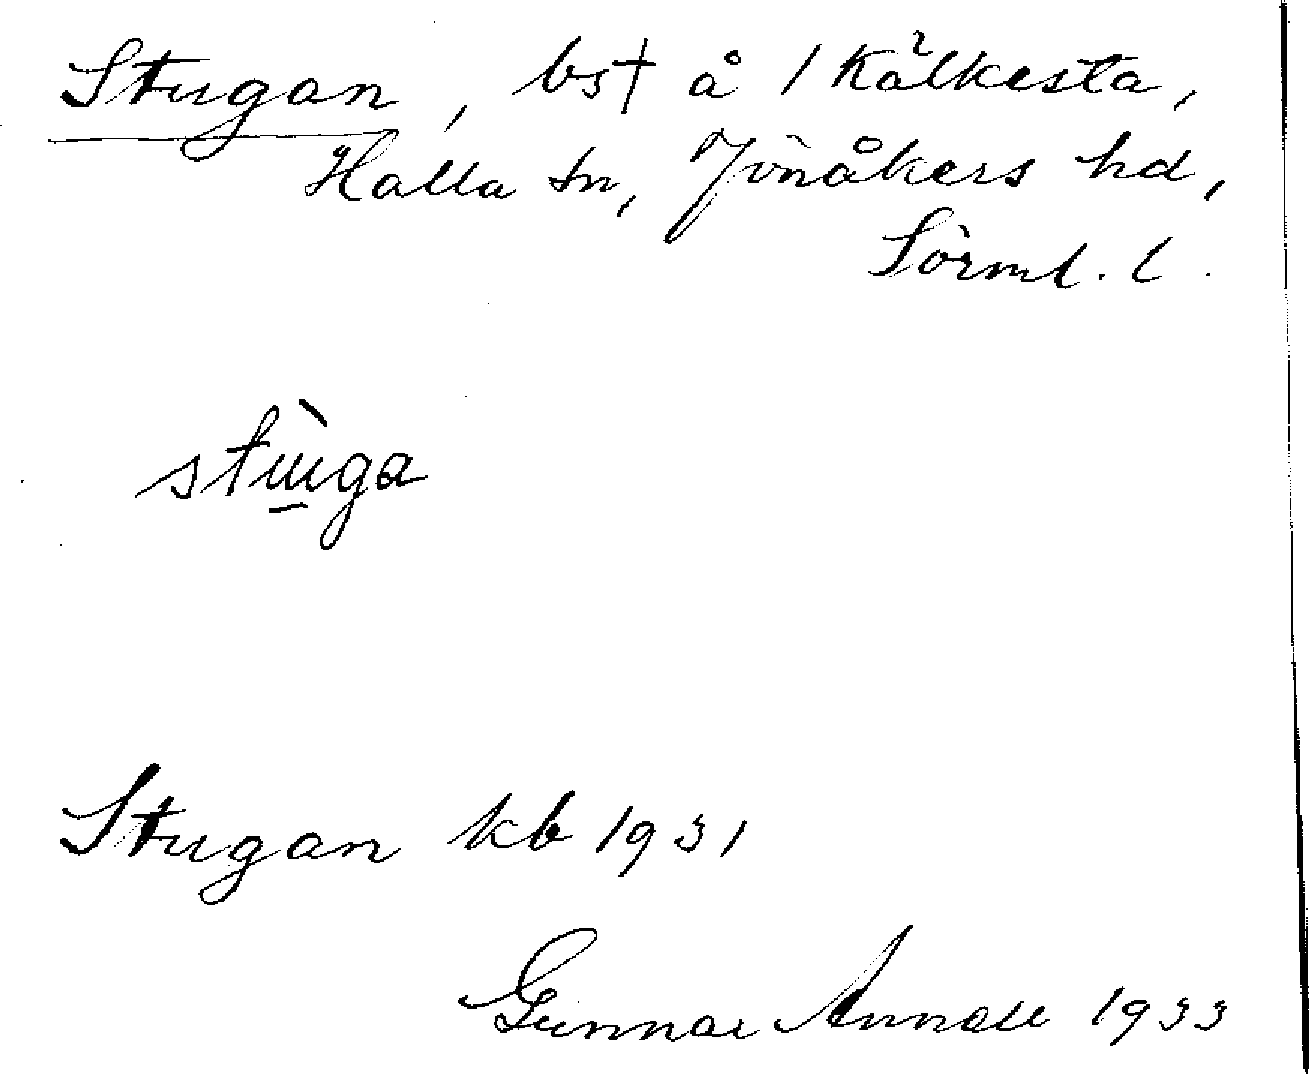 Stugan, bst å 1 Kälkesta,
Halla sn, Jönåkers hd,
Sörml. l.
stùga
Stugan kb 1931
Gunnar Annell 1933